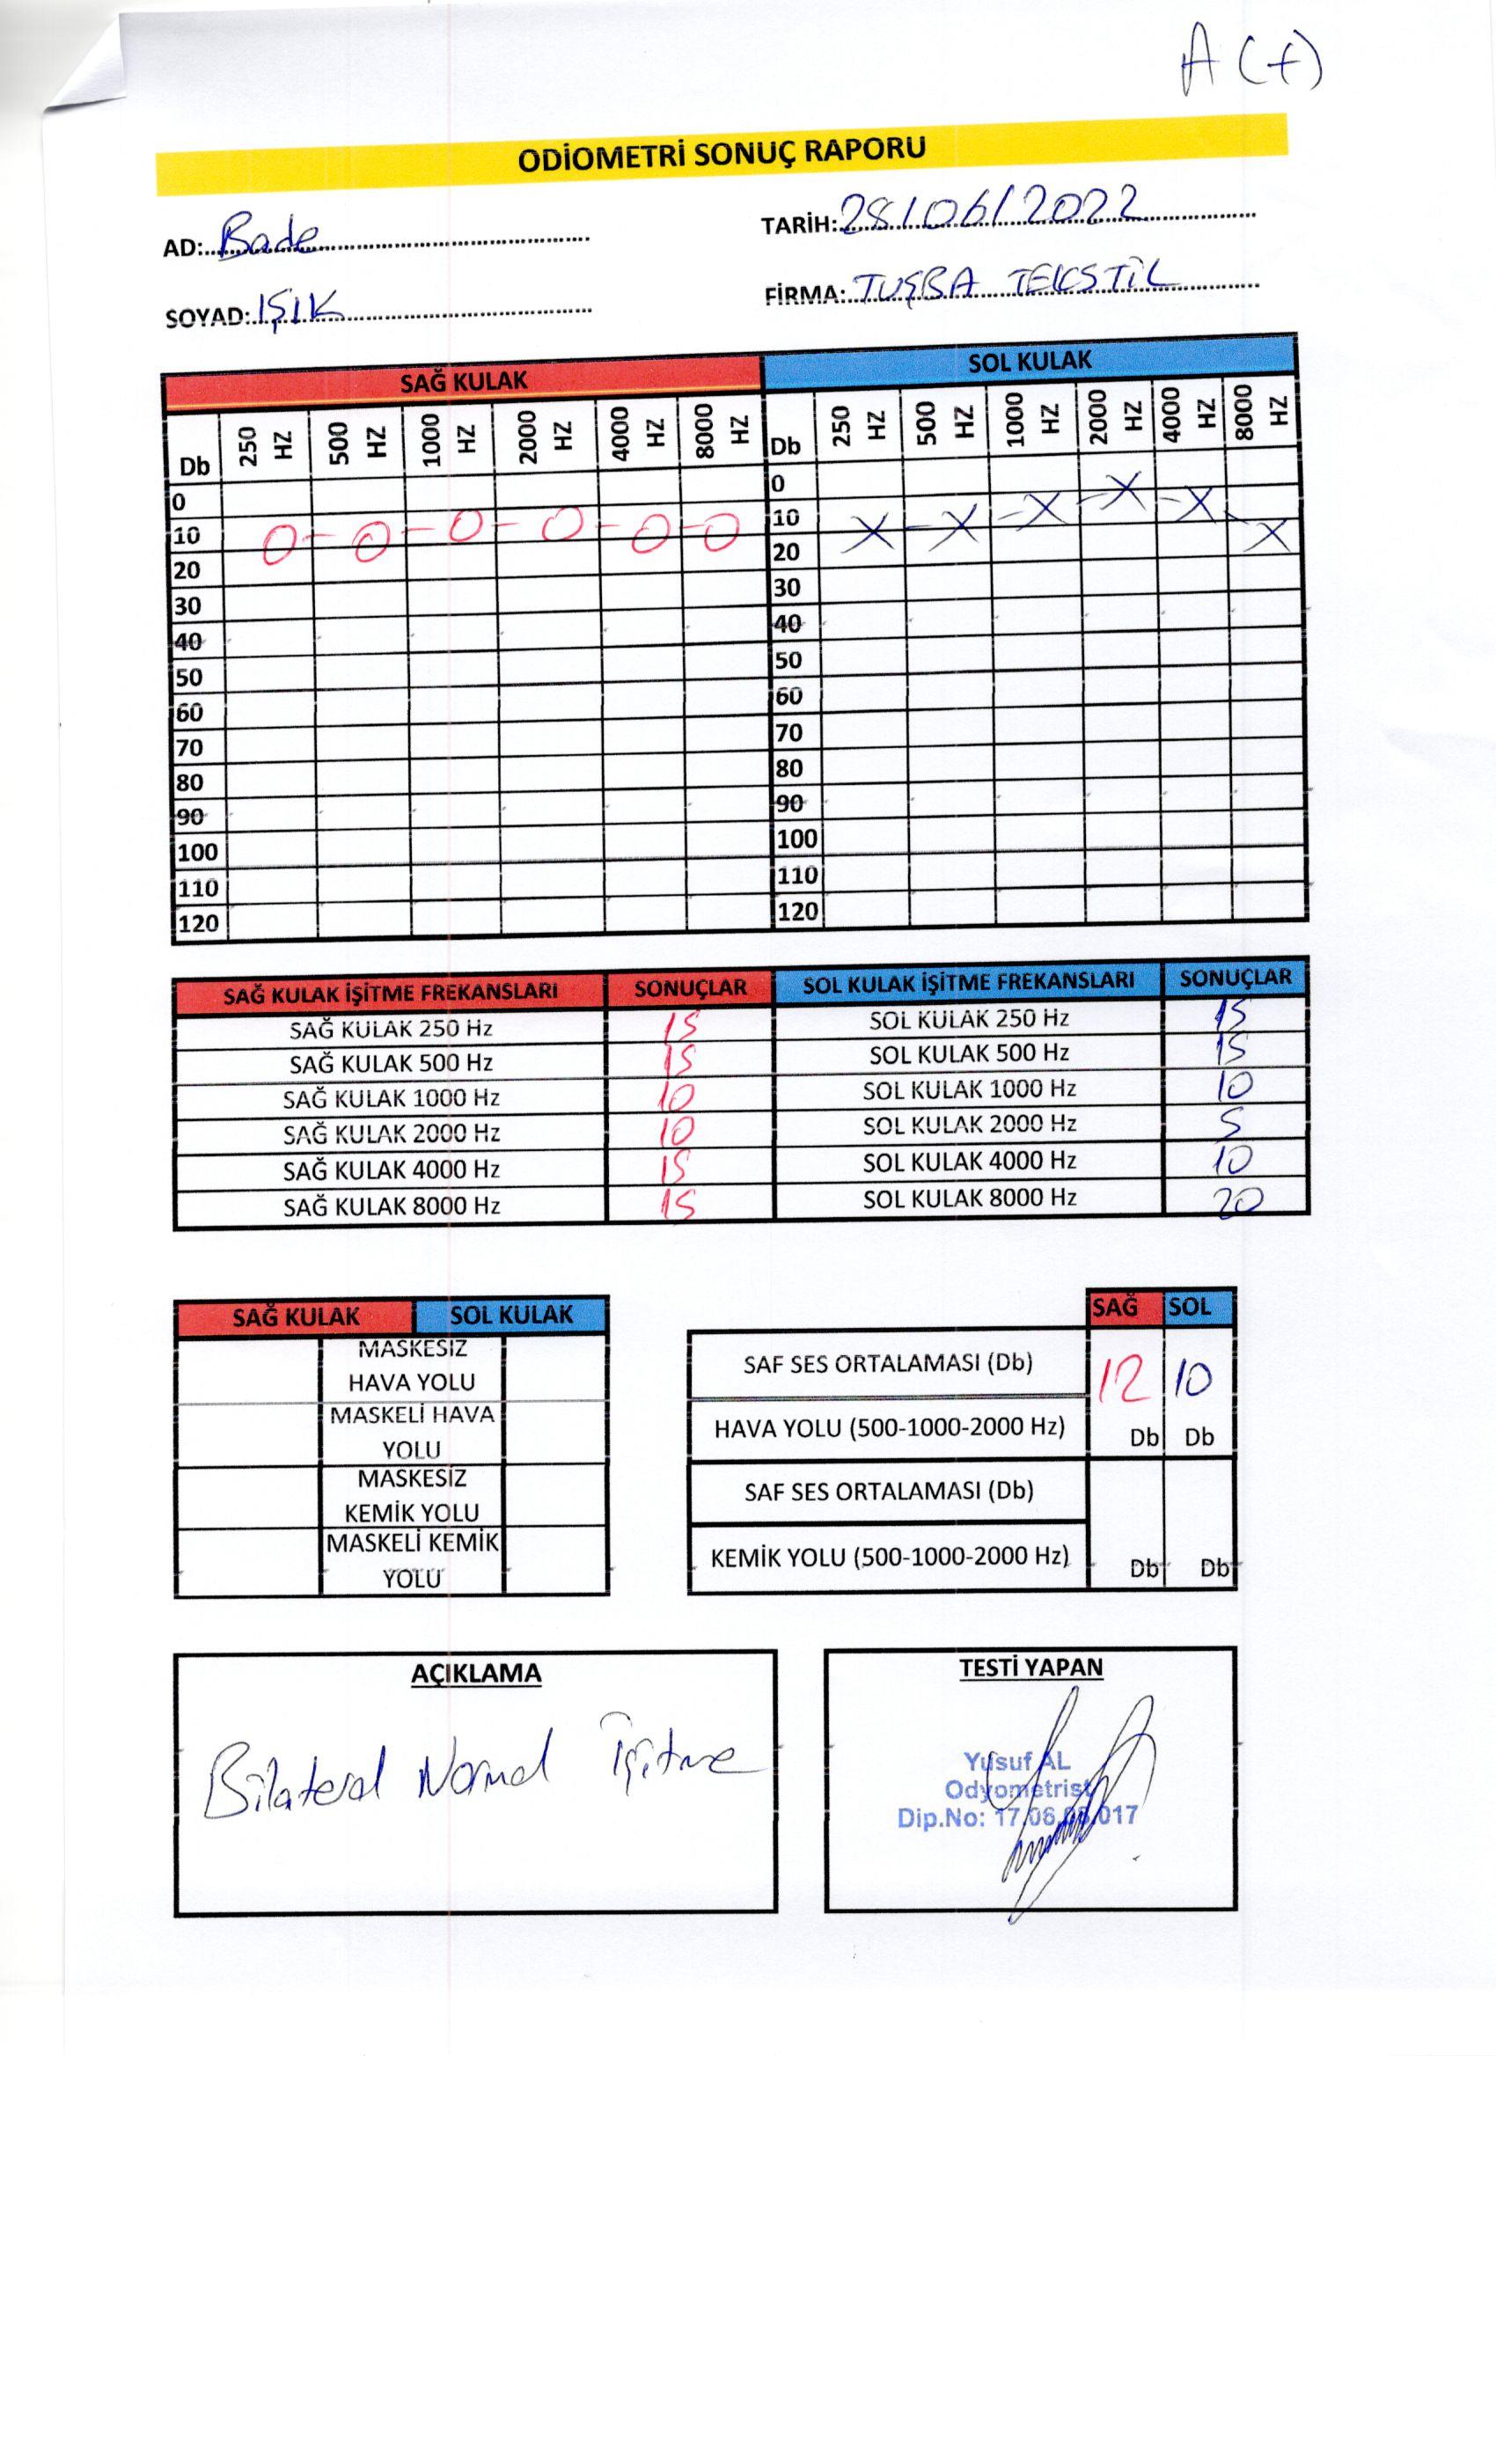 A (+)
ODİOMETRİ SONUÇ RAPORU
AD: Bade
TARİH: 28/06/2022
SOYAD: IŞIK
FİRMA: TUŞBA TEKSTİL
SAĞ KULAK SOL KULAK
Db 250 HZ 500 HZ 1000 HZ 2000 HZ 4000 HZ 8000 HZ Db 250 HZ 500 HZ 1000 HZ 2000 HZ 4000 HZ 8000 HZ
0 0
10 10
20 20
30 30
40 40
50 50
60 60
70 70
80 80
90 90
100 100
110 110
120 120
SAĞ KULAK İŞİTME FREKANSLARI SONUÇLAR SOL KULAK İŞİTME FREKANSLARI SONUÇLAR
SAĞ KULAK 250 Hz 15 SOL KULAK 250 Hz 15
SAĞ KULAK 500 Hz 15 SOL KULAK 500 Hz 15
SAĞ KULAK 1000 Hz 10 SOL KULAK 1000 Hz 10
SAĞ KULAK 2000 Hz 10 SOL KULAK 2000 Hz 5
SAĞ KULAK 4000 Hz 15 SOL KULAK 4000 Hz 10
SAĞ KULAK 8000 Hz 15 SOL KULAK 8000 Hz 20
SAĞ KULAK SOL KULAK
MASKESİZ
HAVA YOLU
MASKELİ HAVA
YOLU
MASKESİZ
KEMİK YOLU
MASKELİ KEMİK
YOLU
SAĞ SOL
SAF SES ORTALAMASI (Db) 12 10
HAVA YOLU (500-1000-2000 Hz) Db Db
SAF SES ORTALAMASI (Db)
KEMİK YOLU (500-1000-2000 Hz) Db Db
AÇIKLAMA
Bilateral Normal İşitme
TESTİ YAPAN
Yusuf AL
Odyometrist
Dip.No: 17.06.08.017